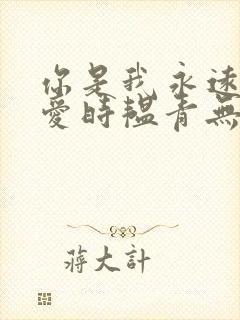 你是我永遠
愛時韞青無
蔣大計